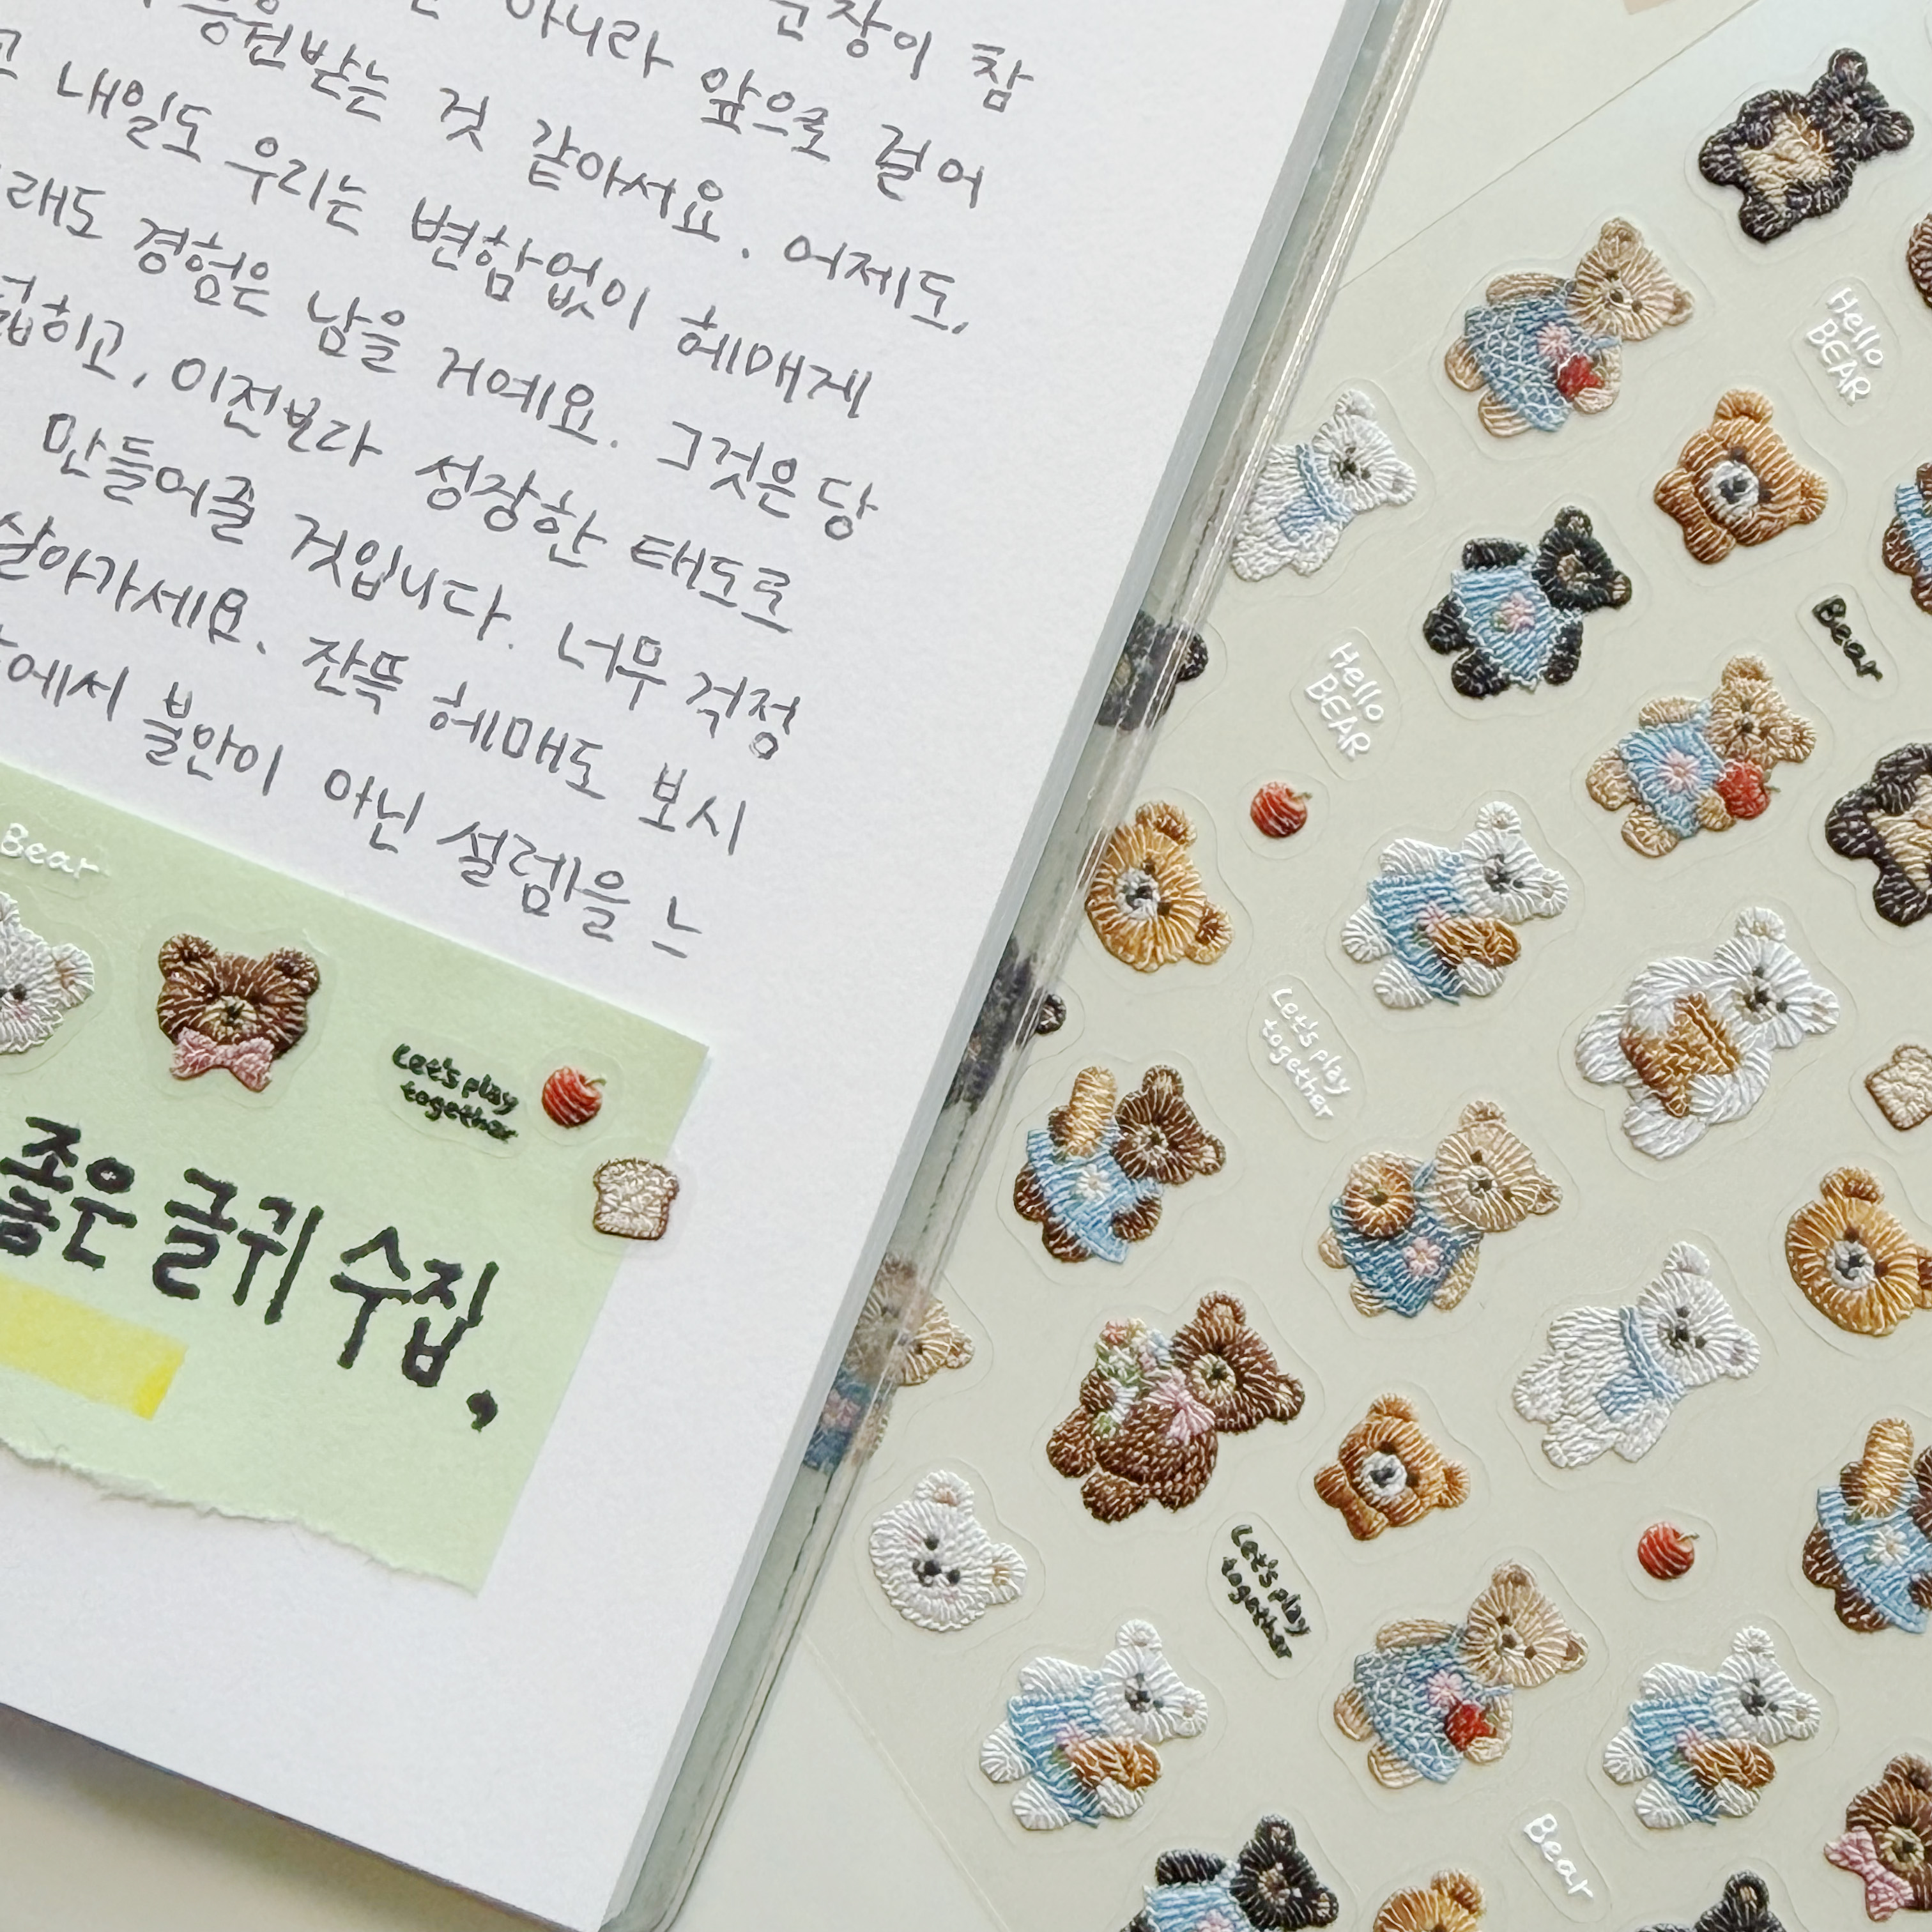 아니라 문장이 참
응원받는 것 같아서요. 앞으로 걸어
고 내일도 우리는 변함없이 어제도,
래도 경험은 남을 거예요. 헤매게
겹히고, 이전보다 성장한 그것은 당
만들어줄 것입니다. 태도로
살아가세요. 잔뜩 너무 걱정
에서 불안이 헤매도 보시
아닌 설렘을 느
Bear
Let's play
together
좋은 글귀 수집,
Hello
BEAR
Bear
Hello
BEAR
Let's play
together
Let's play
together
Bear